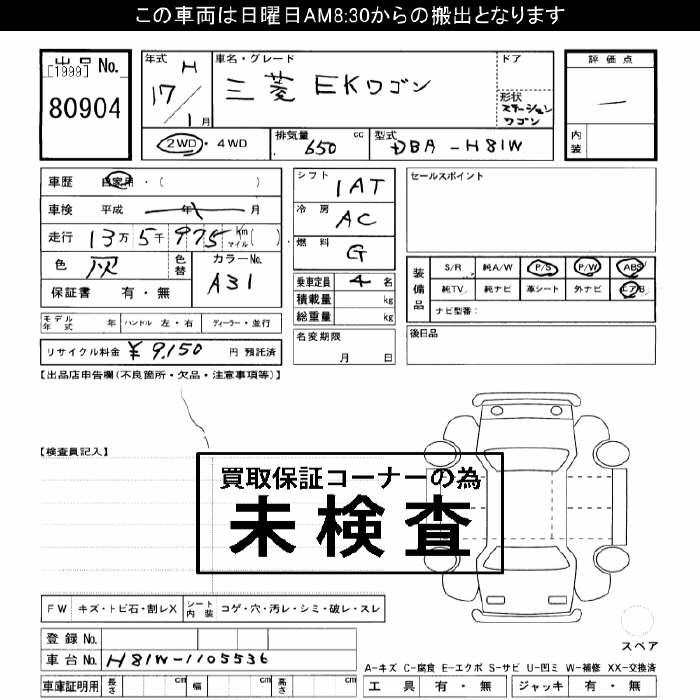 この車両は日曜日AM8:30からの搬出となります
出品 No.
[1999]
80904
年式 H 17/1月
車名・グレード
三菱 EKワゴン
ドア
形状 ステーションワゴン
評価点
—
内装
2WD・4WD
排気量 650 cc
型式 DBA-H81W
車歴 自家用・( )
車検 平成 年 月
走行 13万5千975 km マイル( )
色 灰 色替
カラーNo. A31
保証書 有・無
シフト 1AT
冷房 AC
燃料 G
乗車定員 4 名
積載量 kg
総重量 kg
名変期限
月 日
セールスポイント
装備品
S/R 純A/W P/S P/W ABS
純TV 純ナビ 革シート 外ナビ エアB
ナビ型番:
後日品
モデル年式 年 ハンドル 左・右 ディーラー・並行
リサイクル料金 ¥9,150 円 預託済
【出品店申告欄(不良箇所・欠品・注意事項等)】
【検査員記入】
買取保証コーナーの為
未検査
FW キズ・トビ石・割レX シート内装 コゲ・穴・汚レ・シミ・破レ・スレ
登録 No.
車台 No. H81W-1105536
車庫証明用 長さ cm 幅 cm 高さ cm
スペア
A-キズ C-腐食 E-エクボ S-サビ U-凹ミ W-補修 XX-交換済
工具 有・無 ジャッキ 有・無